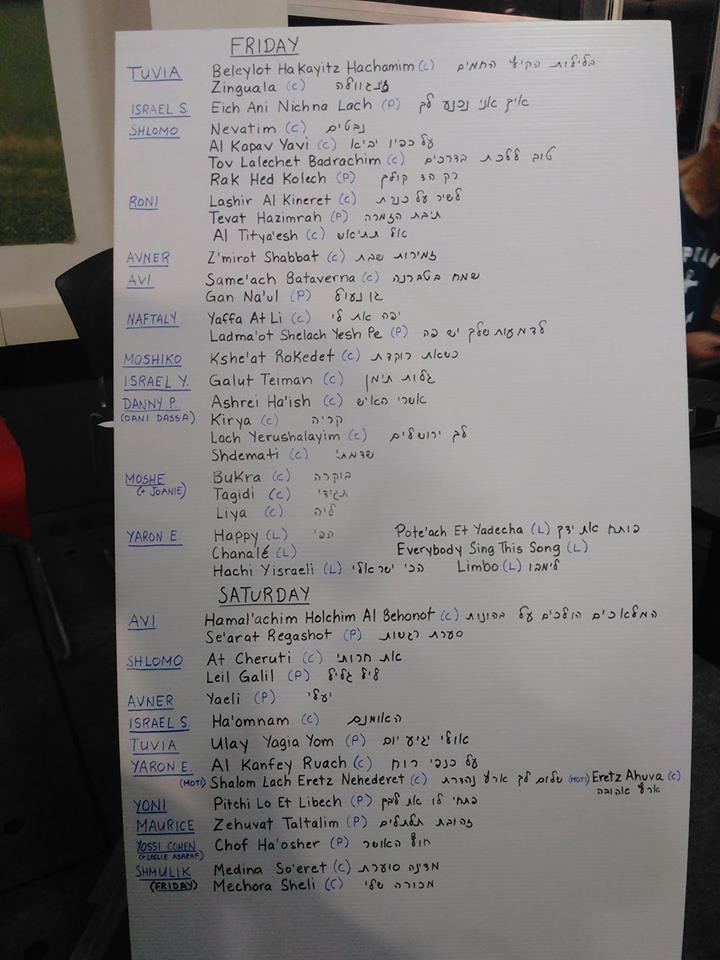 FRIDAY
TUVIA Beleylot HaKayitz Hachamim (C) בלילות הקיץ החמים
Zinguala (C) זינגוולה
ISRAEL S. Eich Ani Nichna Lach (P) איך אני נכנע לך
SHLOMO Nevatim (C) נבטים
Al Kapav Yavi (C) על כפיו יביא
Tov Lalechet Badrachim (C) טוב ללכת בדרכים
Rak Hed Kolech (P) רק הד קולך
RONI Lashir Al Kineret (C) לשיר על כנרת
Tevat Hazimrah (P) תיבת הזמרה
Al Titya'esh (C) אל תתיאש
AVNER Z'mirot Shabbat (C) זמירות שבת
AVI Same'ach Bataverna (C) שמח בטברנה
Gan Na'ul (P) גן נעול
NAFTALY Yaffa At Li (C) יפה את לי
Ladma'ot Shelach Yesh Pe (P) לדמעות שלך יש פה
MOSHIKO Kshe'at Rokedet (C) כשאת רוקדת
ISRAEL Y. Galut Teiman (C) גלות תימן
DANNY P. Ashrei Ha'ish (C) אשרי האיש
(DANI DASSA) Kirya (C) קריה
Lach Yerushalayim (C) לך ירושלים
Shdemati (C) שדמתי
MOSHE Bukra (C) בוקרה
(+ JOANIE) Tagidi (C) תגידי
Liya (C) ליה
YARON E. Happy (L) הפי Pote'ach Et Yadecha (L) פותח את ידך
Chanalé (L) Everybody Sing This Song (L)
Hachi Yisraeli (L) הכי ישראלי Limbo (L) לימבו
SATURDAY
AVI Hamal'achim Holchim Al Behonot (C) המלאכים הולכים על בהונות
Se'arat Regashot (P) סערת רגשות
SHLOMO At Cheruti (C) את חרותי
Leil Galil (P) ליל גליל
AVNER Yaeli (P) יעלי
ISRAEL S. Ha'omnam (C) האומנם
TUVIA Ulay Yagia Yom (P) אולי יגיע יום
YARON E. Al Kanfey Ruach (C) על כנפי רוח
(MOTI) Shalom Lach Eretz Nehederet (C) שלום לך ארץ נהדרת (MOTI) Eretz Ahuva (C)
ארץ אהובה
YONI Pitchi Lo Et Libech (P) פתחי לו את לבך
MAURICE Zehuvat Taltalim (P) זהובת תלתלים
YOSSI COHEN Chof Ha'osher (P) חוף האושר
(+ LESLIE ASARAF)
SHMULIK Medina So'eret (C) מדינה סוערת
(FRIDAY) Mechora Sheli (C) מכורה שלי